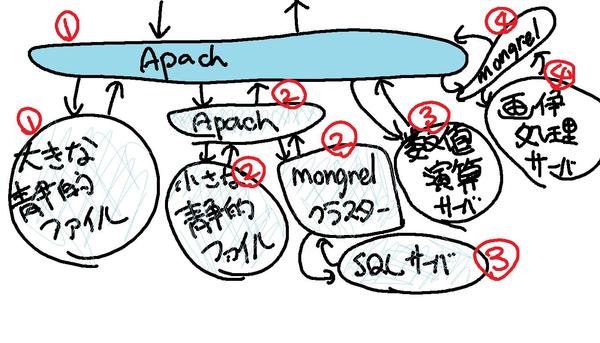 ① Apach
④ mongrel
① 大きな
静的
ファイル
② Apach
② 小さな
静的
ファイル
② mongrel
クラスター
③ SQLサーバ
③ 数値
演算
サーバ
④ 画伊
処理
サーバ